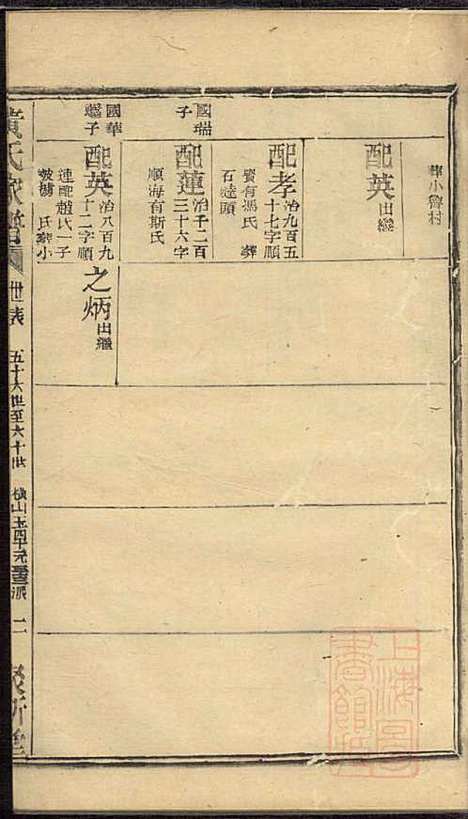 葬小魯村
配英出繼
配孝治九百五
十七字順
賓有馮氏葬
石達頭
國瑞
子
配蓮治千二百
三十六字
順海有斯氏
國華
繼子
配英治八百九
十二字順
連配趙氏一子
氏葬小
之炳出繼
黃氏家譜
世表
五十六世至六十世
二
上海圖書館藏